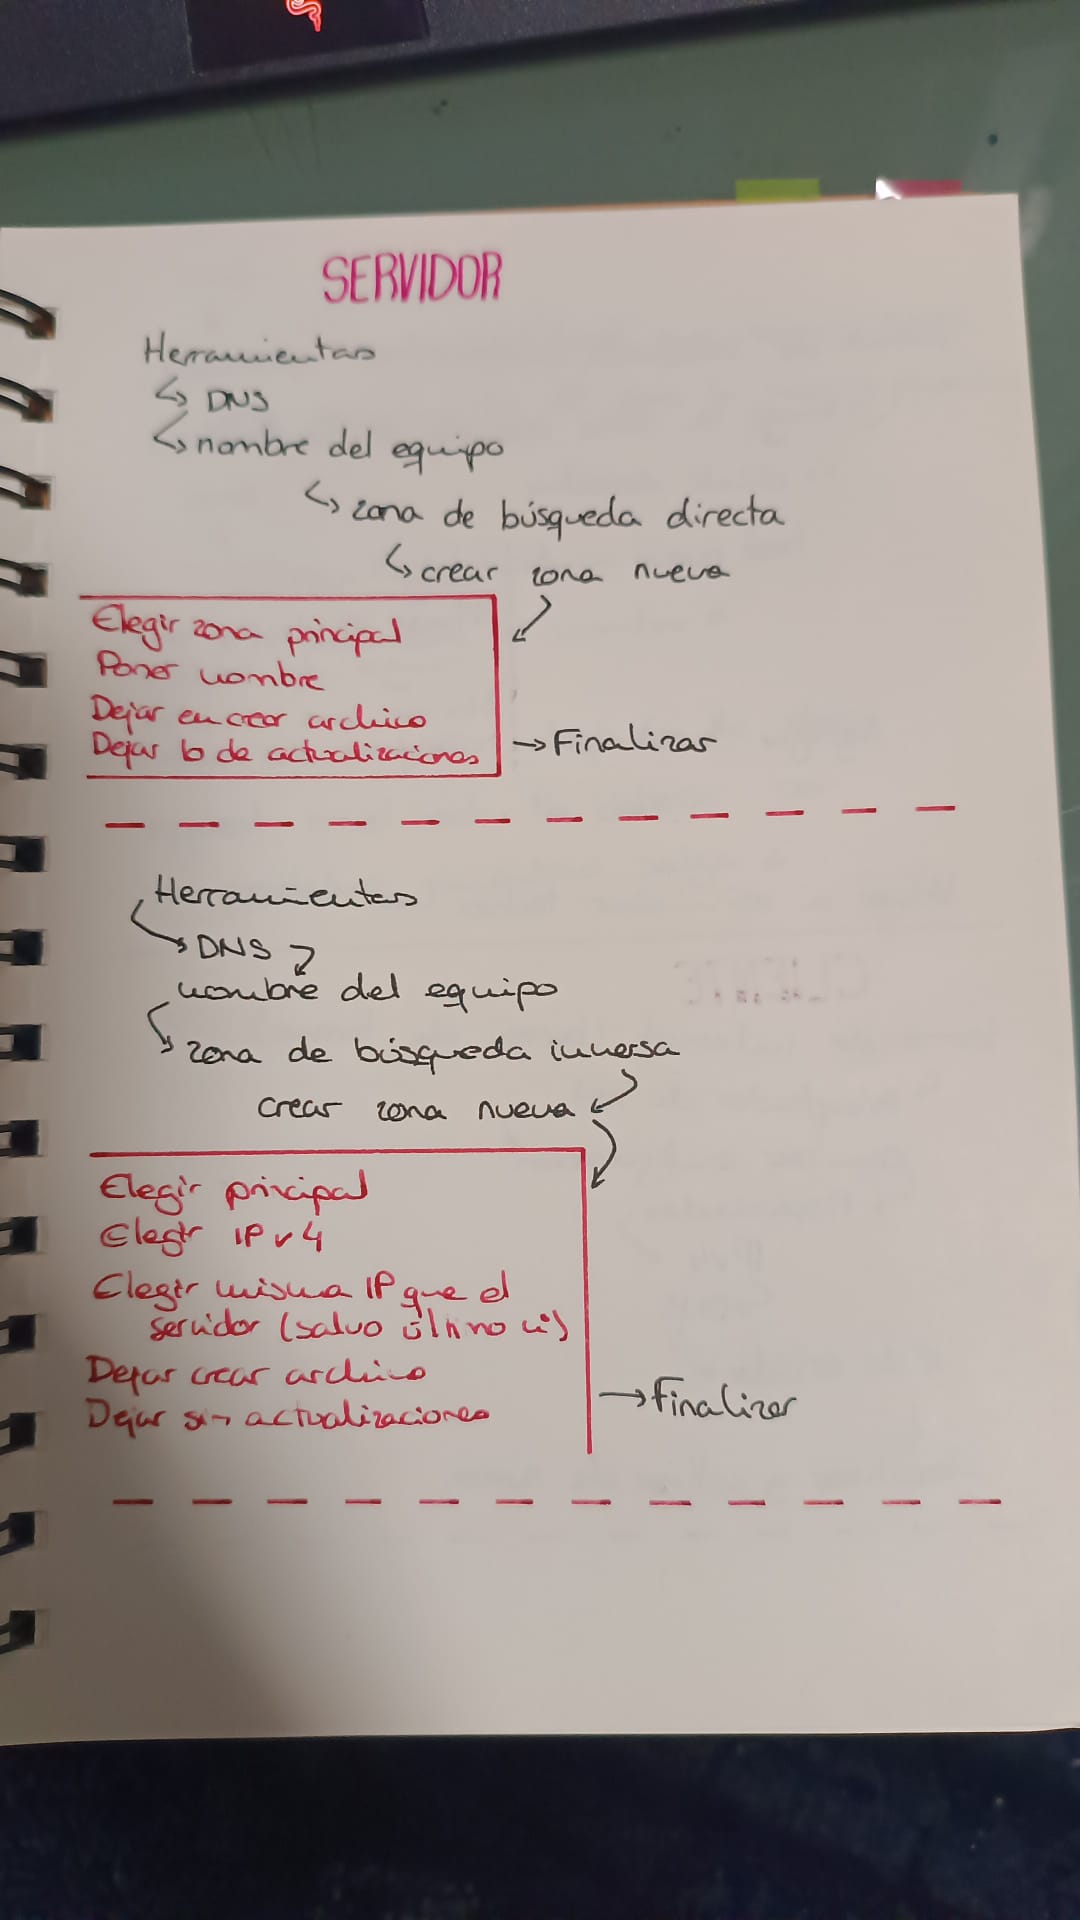 SERVIDOR
Herramientas
↳ DNS
↳ nombre del equipo
↳ zona de búsqueda directa
↳ crear zona nueva
Elegir zona principal
Poner nombre
Dejar en crear archivo
Dejar lo de actualizaciones → Finalizar
Herramientas
DNS
nombre del equipo
zona de búsqueda inversa
crear zona nueva
Elegir principal
Elegir IPv4
Elegir misma IP que el
servidor (salvo último nº)
Dejar crear archivo
Dejar sin actualizaciones → Finalizar